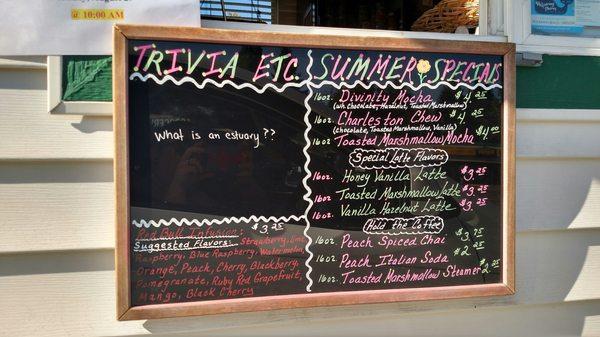 @ 10:00 AM
TRIVIA ETC.
What is an estuary??
Red Bull Infusion: $3.25
Suggested Flavors: Strawberry, Lime,
Raspberry, Blue Raspberry, Watermelon,
Orange, Peach, Cherry, Blackberry,
Pomegranate, Ruby Red Grapefruit,
Mango, Black Cherry
SUMMER SPECIALS
16oz. Divinity Mocha $4.25
(Wh Chocolate, Hazelnut, Toasted Marshmallow)
16oz. Charleston Chew $4.25
(Chocolate, Toasted Marshmallow, Vanilla)
16oz Toasted Marshmallow Mocha $4.00
Special Latte Flavors
16oz. Honey Vanilla Latte $3.75
16oz. Toasted Marshmallow Latte $3.75
16oz Vanilla Hazelnut Latte $3.75
Hold the Coffee
16oz Peach Spiced Chai $3.75
16oz. Peach Italian Soda $2.25
16oz. Toasted Marshmallow Steamer $2.25